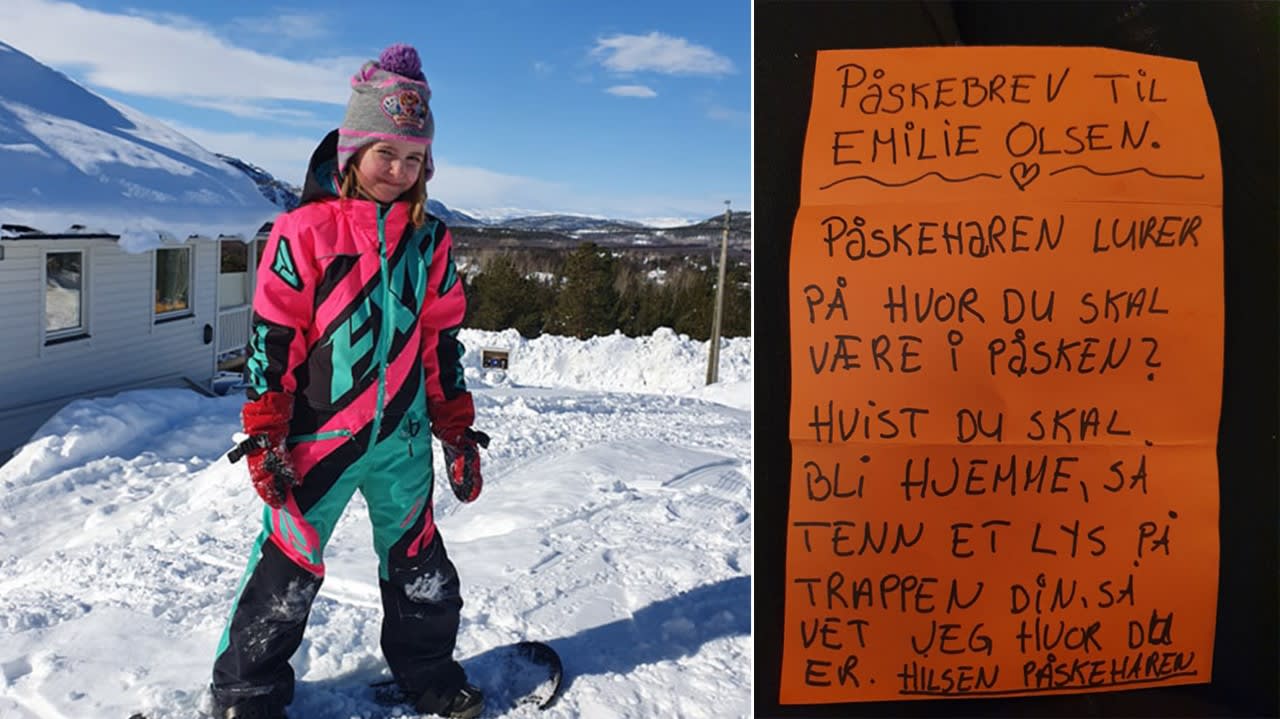 PÅSKEBREV TIL
EMILIE OLSEN.
PÅSKEHAREN LURER
PÅ HVOR DU SKAL
VÆRE I PÅSKEN?
HVIST DU SKAL
BLI HJEMME, SÅ
TENN ET LYS PÅ
TRAPPEN DIN, SÅ
VET JEG HVOR DU
ER. HILSEN PÅSKEHAREN